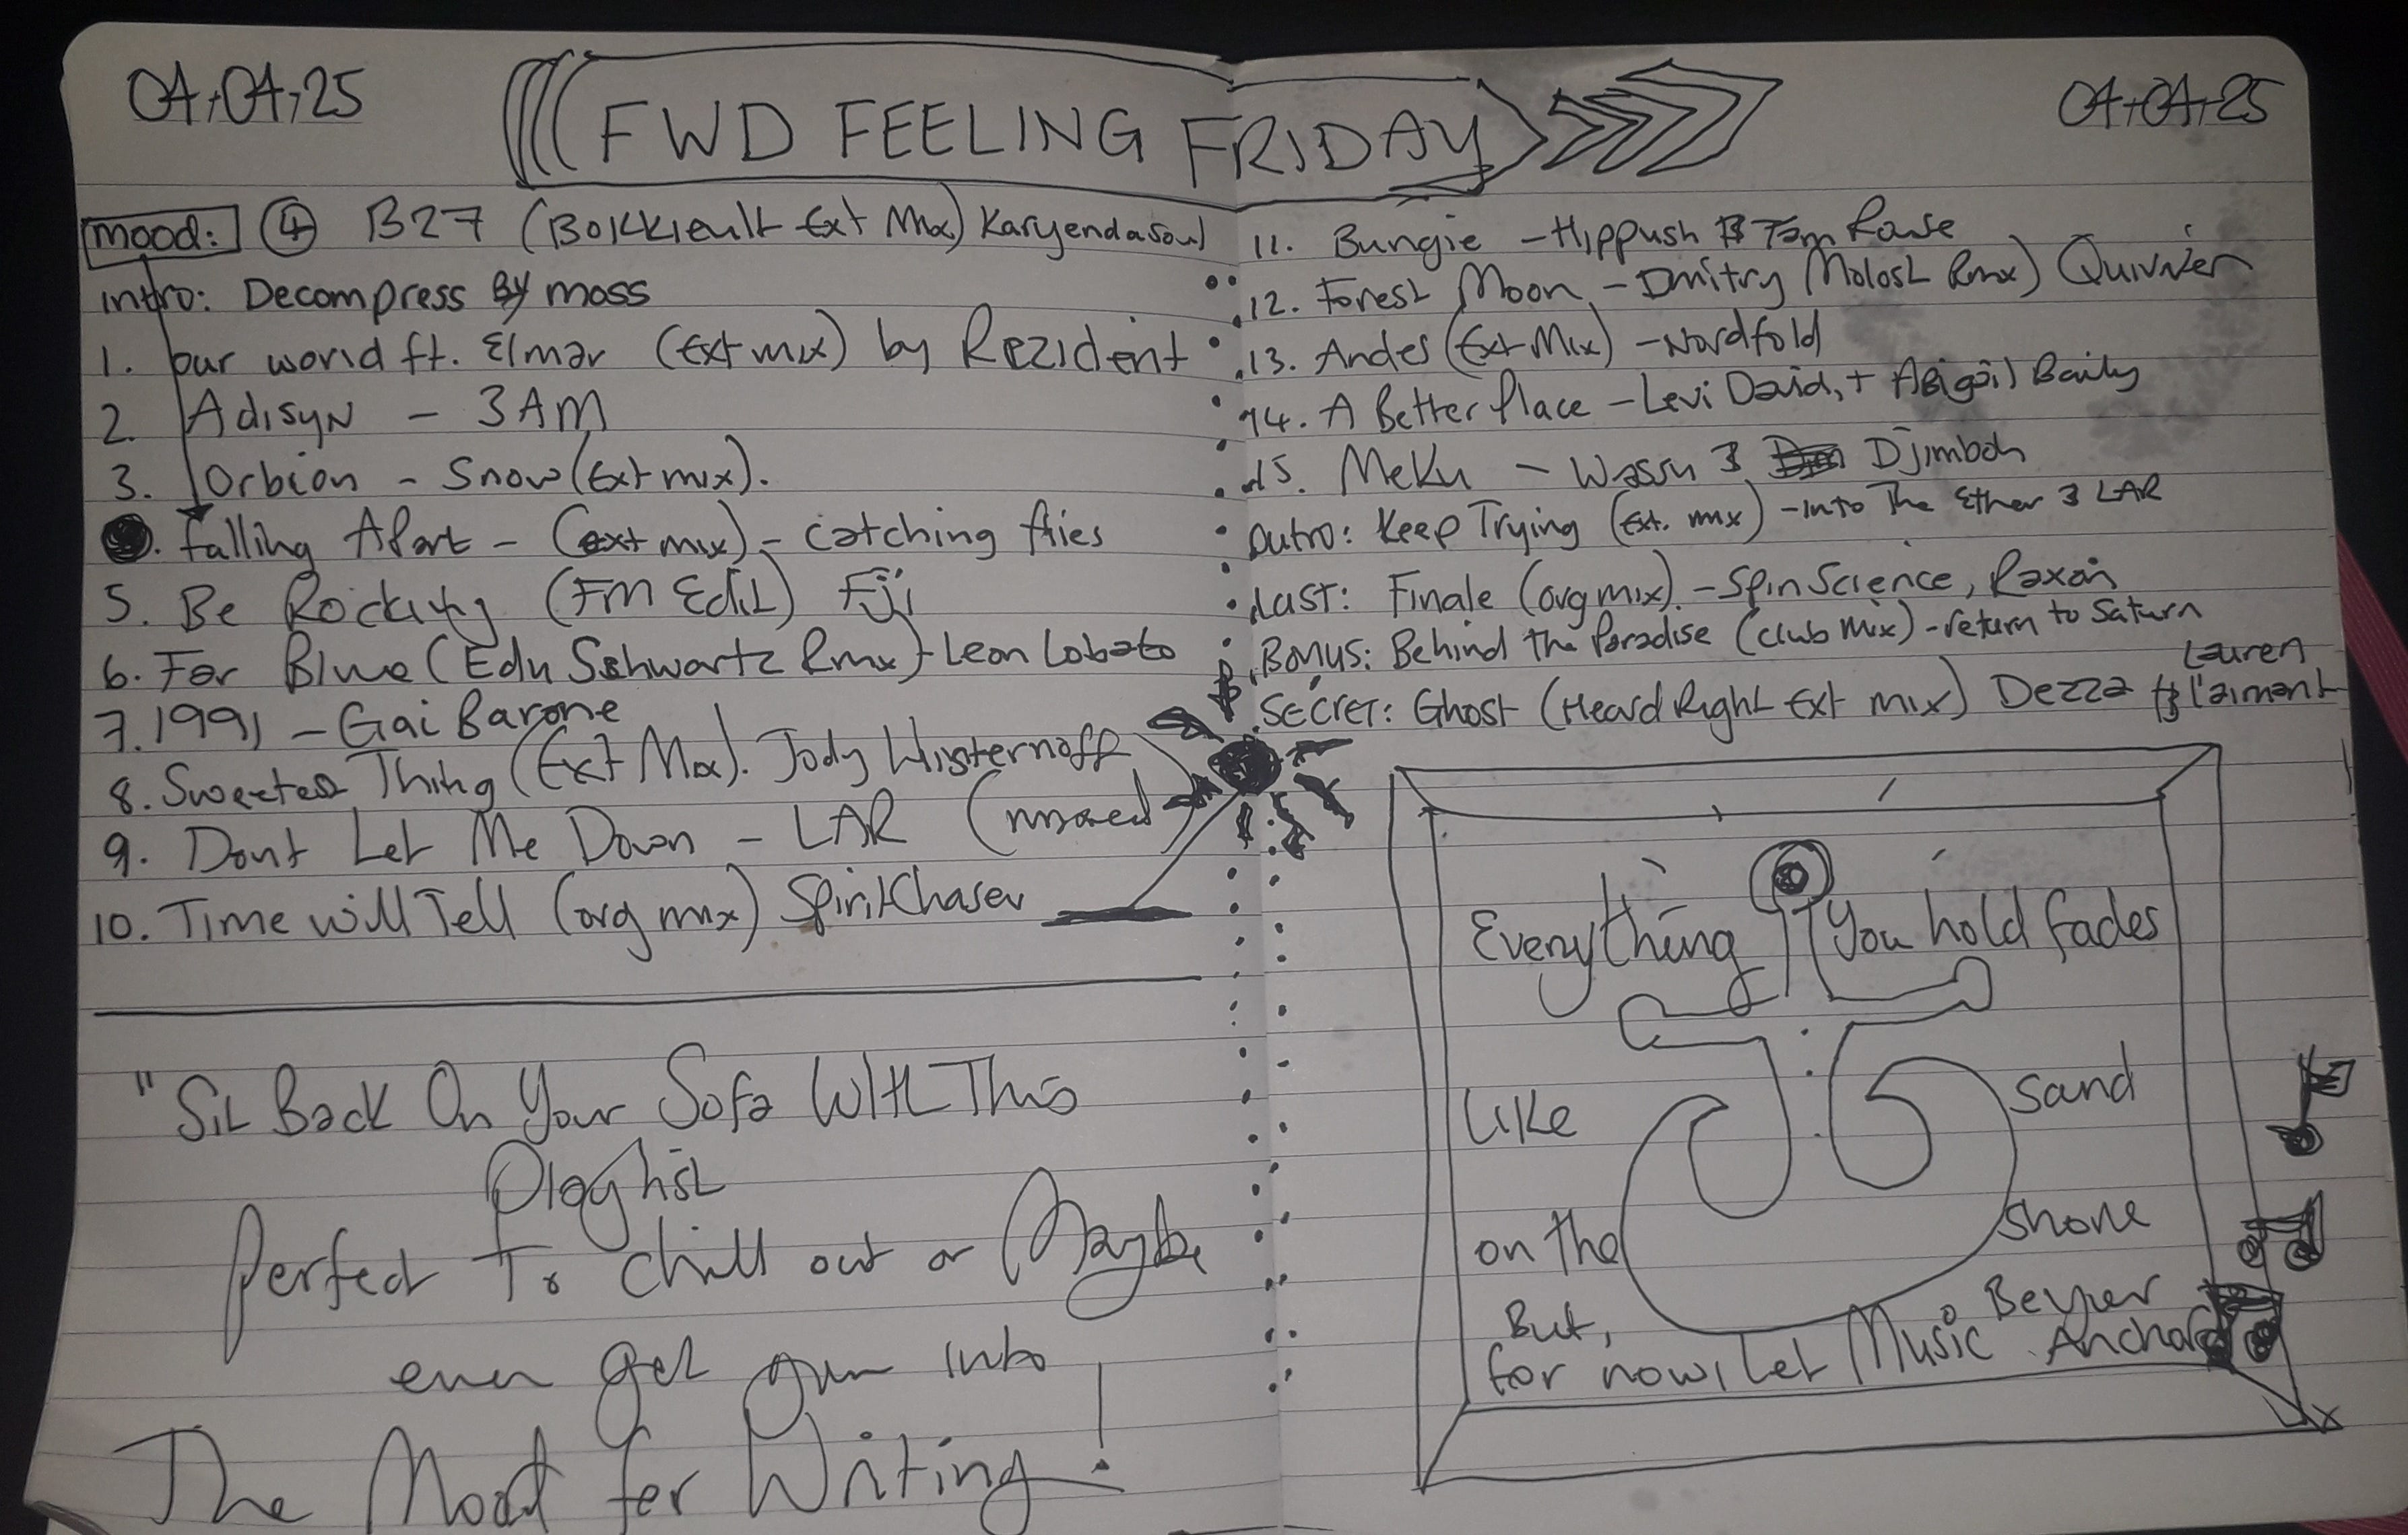 04.04.25
FWD FEELING FRIDAY
04.04.25
mood: 4 B27 (Bokkieult Ext Mix) Karyendasoul
intro: Decompress By moss
1. our world ft. Elmar (Ext mix) by Rezident
2. Adisyn - 3AM
3. Orbion - Snow (Ext mix).
falling Apart - (ext mix) - catching flies
5. Be Rocking (FM Edit) Fiji
6. Far Blue (Edu Schwartz Rmx) - Leon Lobato
7. 1991 - Gai Barone
8. Sweetest Thing (Ext Mix). Jody Wisternoff
9. Dont Let Me Down - LAR (mixed)
10. Time will Tell (org mix) SpiritChaser
"Sit Back On Your Sofa With This
Playlist
Perfect To chill out or Maybe
even get you into
The Mood for Writing!
11. Bungie - Hippush & Tom Rowse
12. Forest Moon - Dmitry Molosh Rmx) Quivver
13. Andes (Ext Mix) - Nordfold
14. A Better Place - Levi David, + Abigail Baily
15. Meku - Wassu & Djimboh
Outro: Keep Trying (Ext. mix) - Into The Ether & LAR
Last: Finale (org mix). - Spin Science, Raxon
Bonus: Behind the Paradise (club mix) - return to Saturn
Secret: Ghost (Heard Right Ext mix) Dezza & Lauren
L'aimant
Everything You hold fades
Like sand
on the shore
But,
for now, let Music
x